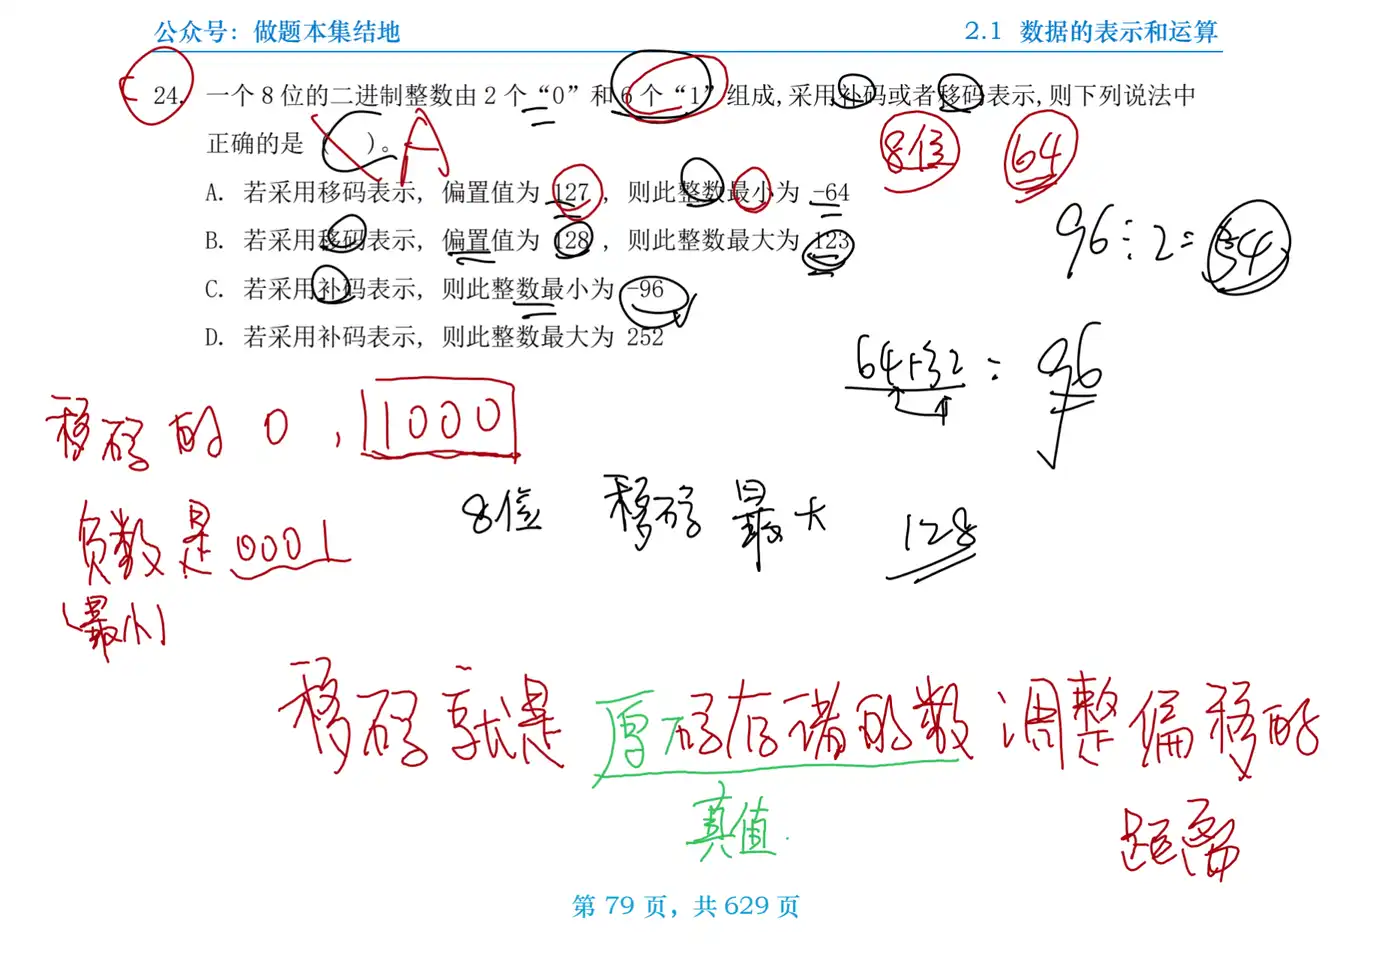 公众号：做题本集结地
2.1 数据的表示和运算
24. 一个8位的二进制整数由2个“0”和6个“1”组成,采用补码或者移码表示,则下列说法中
正确的是（ ）。
A
8位 64
A. 若采用移码表示, 偏置值为 127 , 则此整数最小为 -64
B. 若采用移码表示, 偏置值为 128 , 则此整数最大为 123
C. 若采用补码表示, 则此整数最小为 -96
D. 若采用补码表示, 则此整数最大为 252
96÷2=54
64+32=96
移码的0, 1000
8位 移码最大 128
负数是0001
(最小)
移码就是原码存储的数调整偏移的
距离
真值.
第 79 页，共 629 页